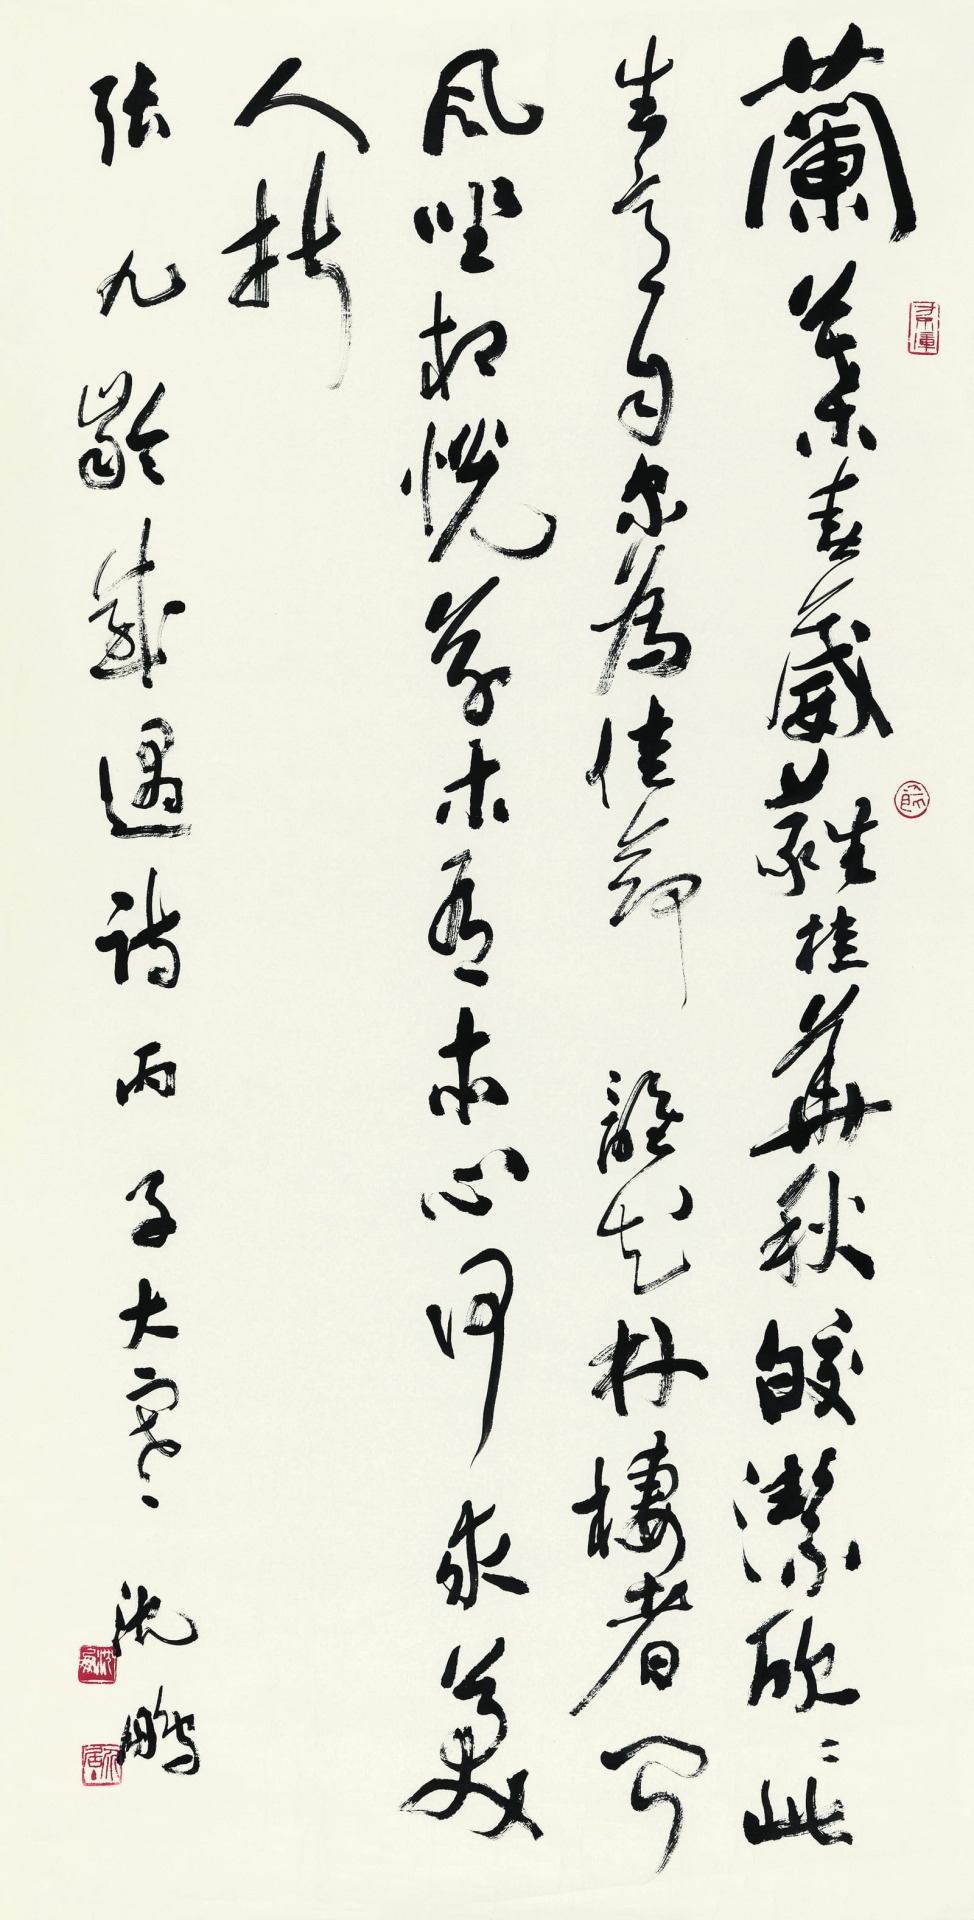 蘭葉春葳蕤桂華秋皎潔欣〻此
生意自尔為佳節誰知林棲者聞
風坐相悦草木有本心何求美
人折
張九齡感遇詩丙子大寒沈鵬